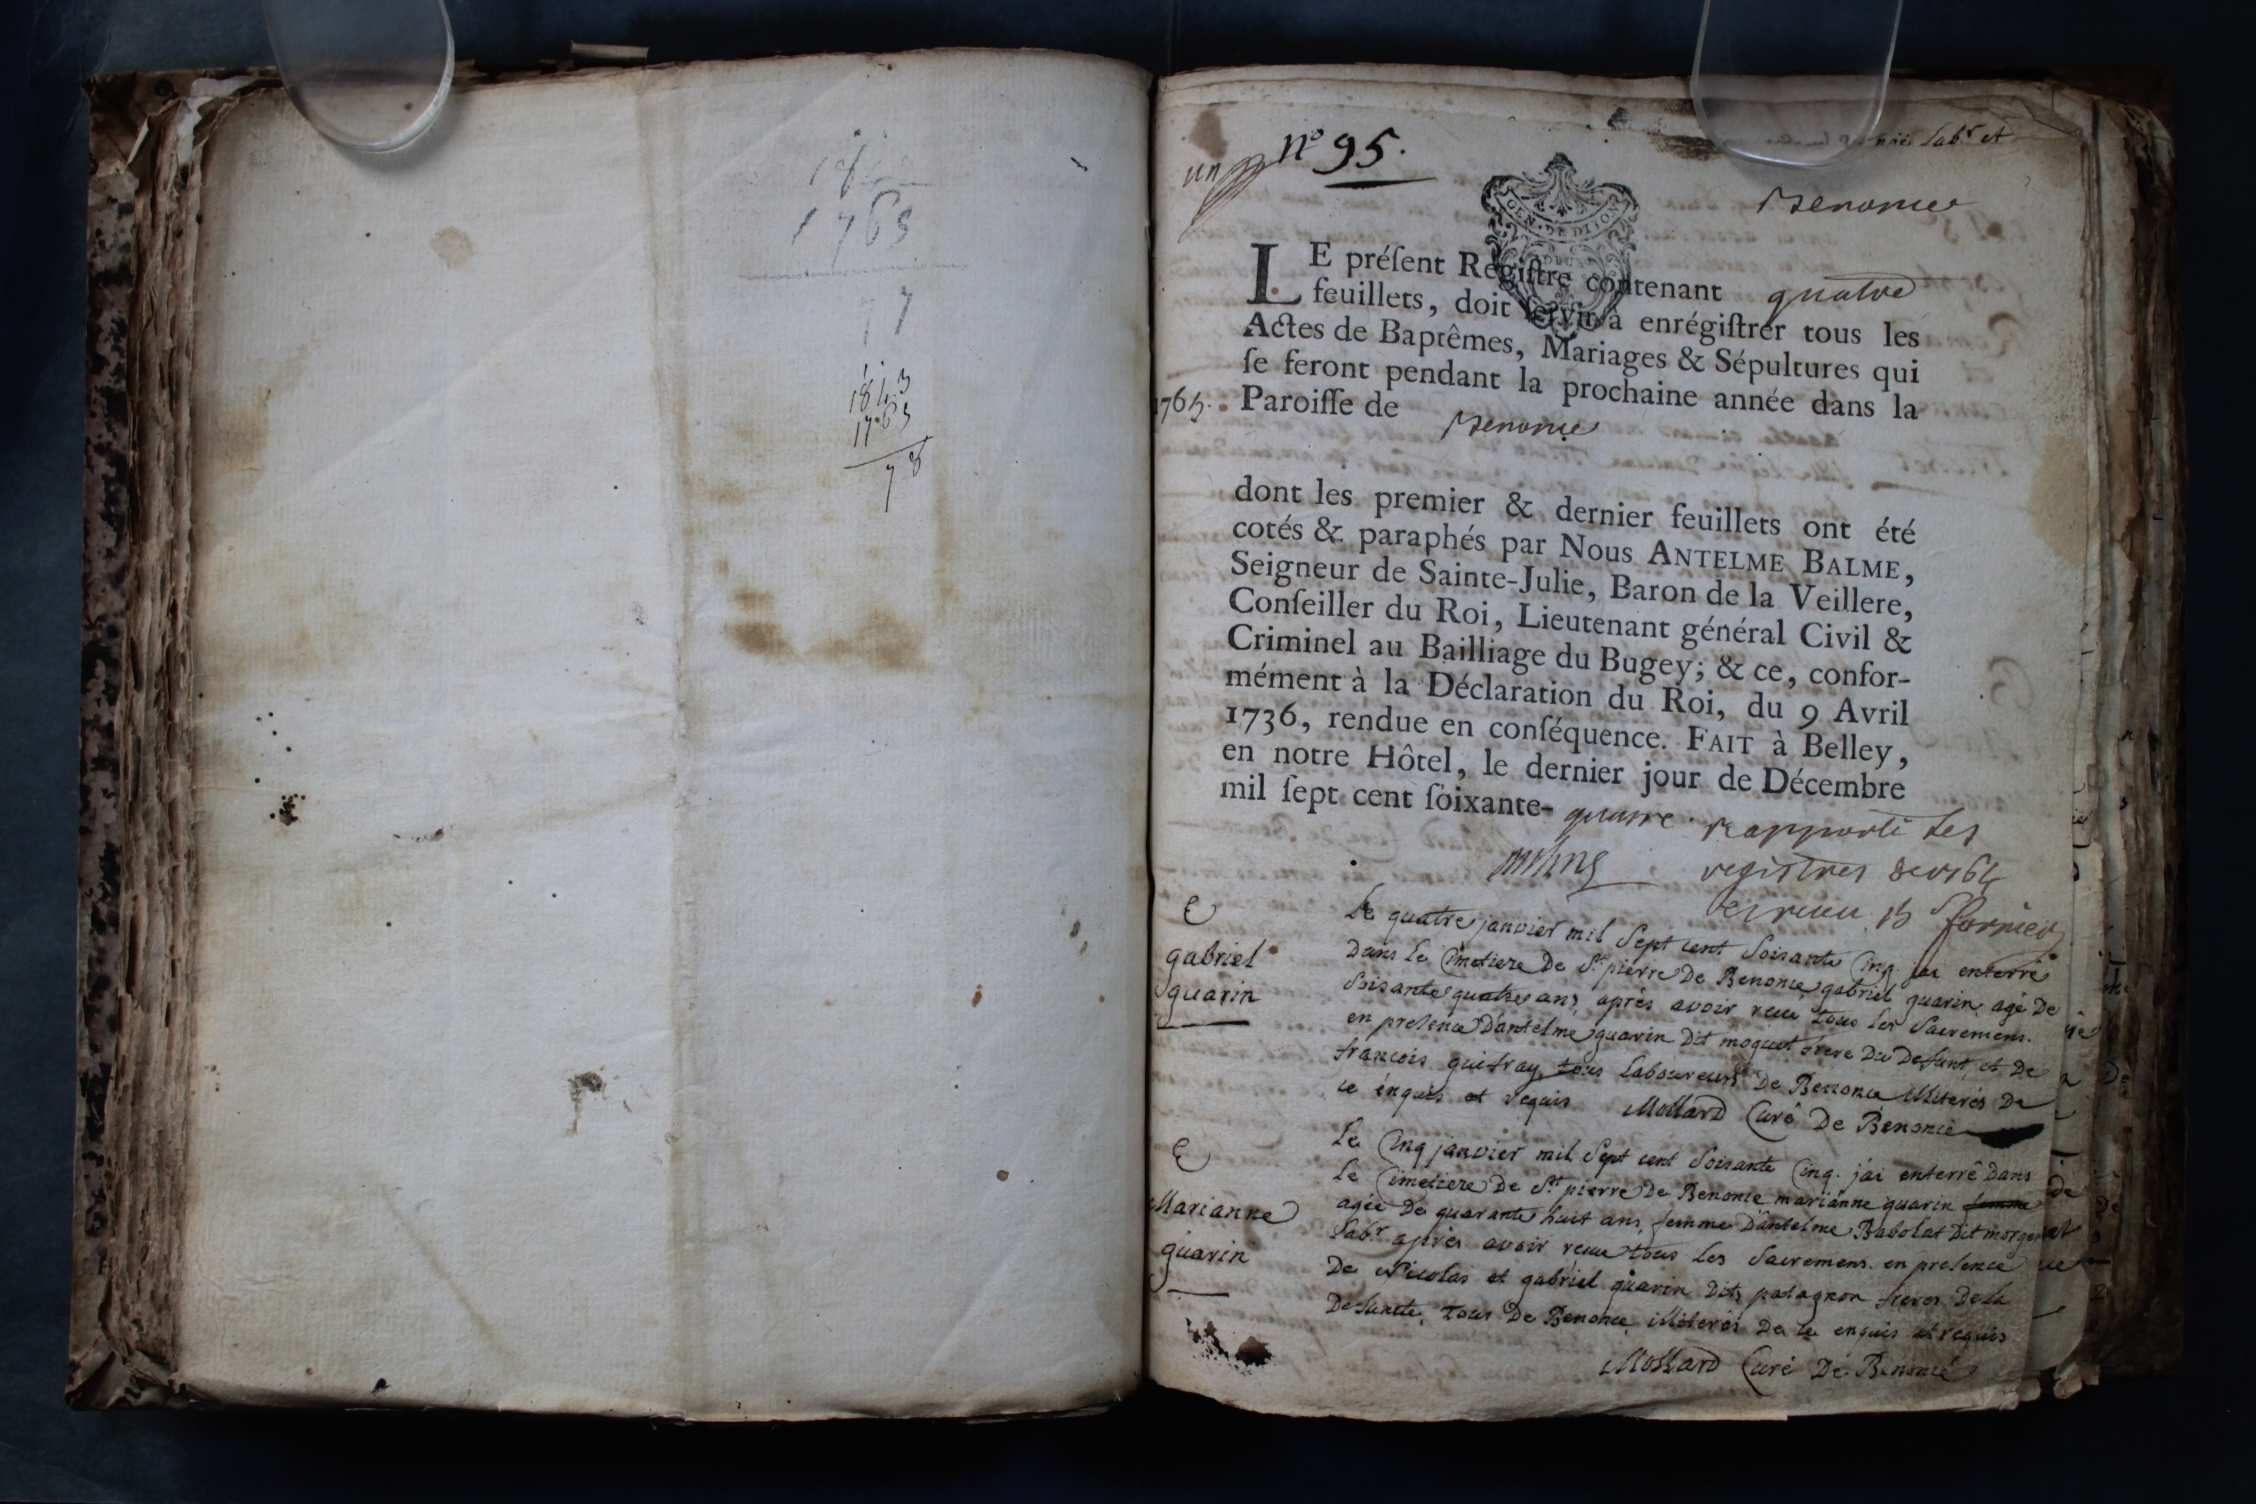 1765
77
1843
1765
78
un
nº 95.
labr et
Benonce
GEN. DE DIJON
LE préſent Regiſtre contenant quatre
feuillets, doit ſervir à enrégiſtrer tous les
Actes de Baptêmes, Mariages & Sépultures qui
ſe feront pendant la prochaine année dans la
1765. Paroiſſe de Benonce
dont les premier & dernier feuillets ont été
cotés & paraphés par Nous ANTELME BALME,
Seigneur de Sainte-Julie, Baron de la Veillere,
Conſeiller du Roi, Lieutenant général Civil &
Criminel au Bailliage du Bugey; & ce, confor-
mément à la Déclaration du Roi, du 9 Avril
1736, rendue en conſéquence. FAIT à Belley,
en notre Hôtel, le dernier jour de Décembre
mil ſept cent ſoixante- quatre.
rapporté les
registres de 1764
E
gabriel
guarin
Le quatre janvier mil Sept cent Soisante Cinq. jai enterré
Dans le Cimetiere De St. pierre De Benonce gabriel guarin, agé De
Soisante quatre ans, après avoir reçu tous les Sacremens.
en presence D'antelme guarin Dit moquet frere Du Defunt, et De
francois guifray, tous laboureurs De Benonce illiterés De
ce enquis et requis Mollard Curé De Benonce
E
Marianne
guarin
Le Cinq janvier mil Sept cent Soisante Cinq. j'ai enterré Dans
Le Cimetiere De St. pierre De Benonce marianne guarin femme
agée De quarante huit ans, femme D'antelme Babolat Dit
labr. après avoir reçue tous les Sacremens. en presence
De Nicolas et gabriel guarin Dits patagnon freres De la
Defuncte. tous De Benonce, illiterés De ce enquis et requis
Mollard Curé De Benonce